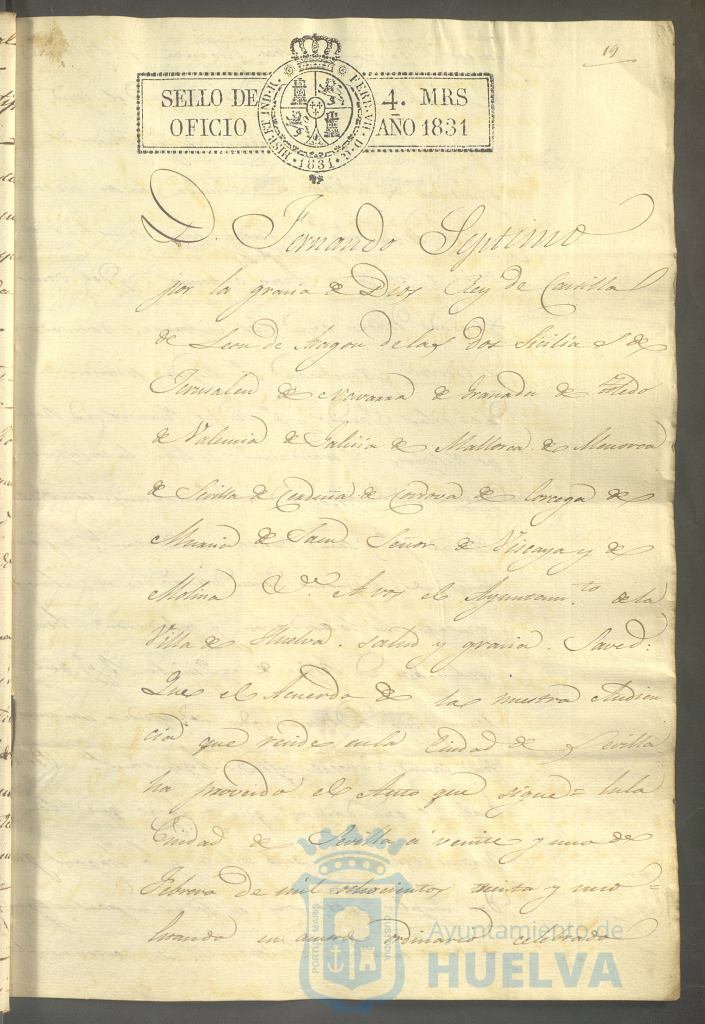 19
SELLO DE OFICIO
HISP. ET IND. R. FERD. VII. D. G. 1831
4. MRS
AÑO 1831
D. Fernando Septimo
por la gracia de Dios Rey de Castilla
de Leon de Aragon de las dos Sicilias de
Jerusalen de Navarra de Granada de Toledo
de Valencia de Galicia de Mallorca de Menorca
de Sevilla de Cerdeña de Cordova de Corcega de
Murcia de Jaen Señor de Viscaya y de
Molina &ª A vos el Ayuntam.to de la
Villa de Huelva. salud y gracia. Saved:
Que el Acuerdo de la nuestra Audien
cia que reside en la Ciudad de Sevilla
ha proveido el Auto que sigue = En la
Ciudad de Sevilla á veinte y uno de
Febrero de mil ochocientos treinta y uno =
Estando en acuerdo ordinario celebrado
PORTUS MARIS
CUSTODIA
Ayuntamiento de
HUELVA